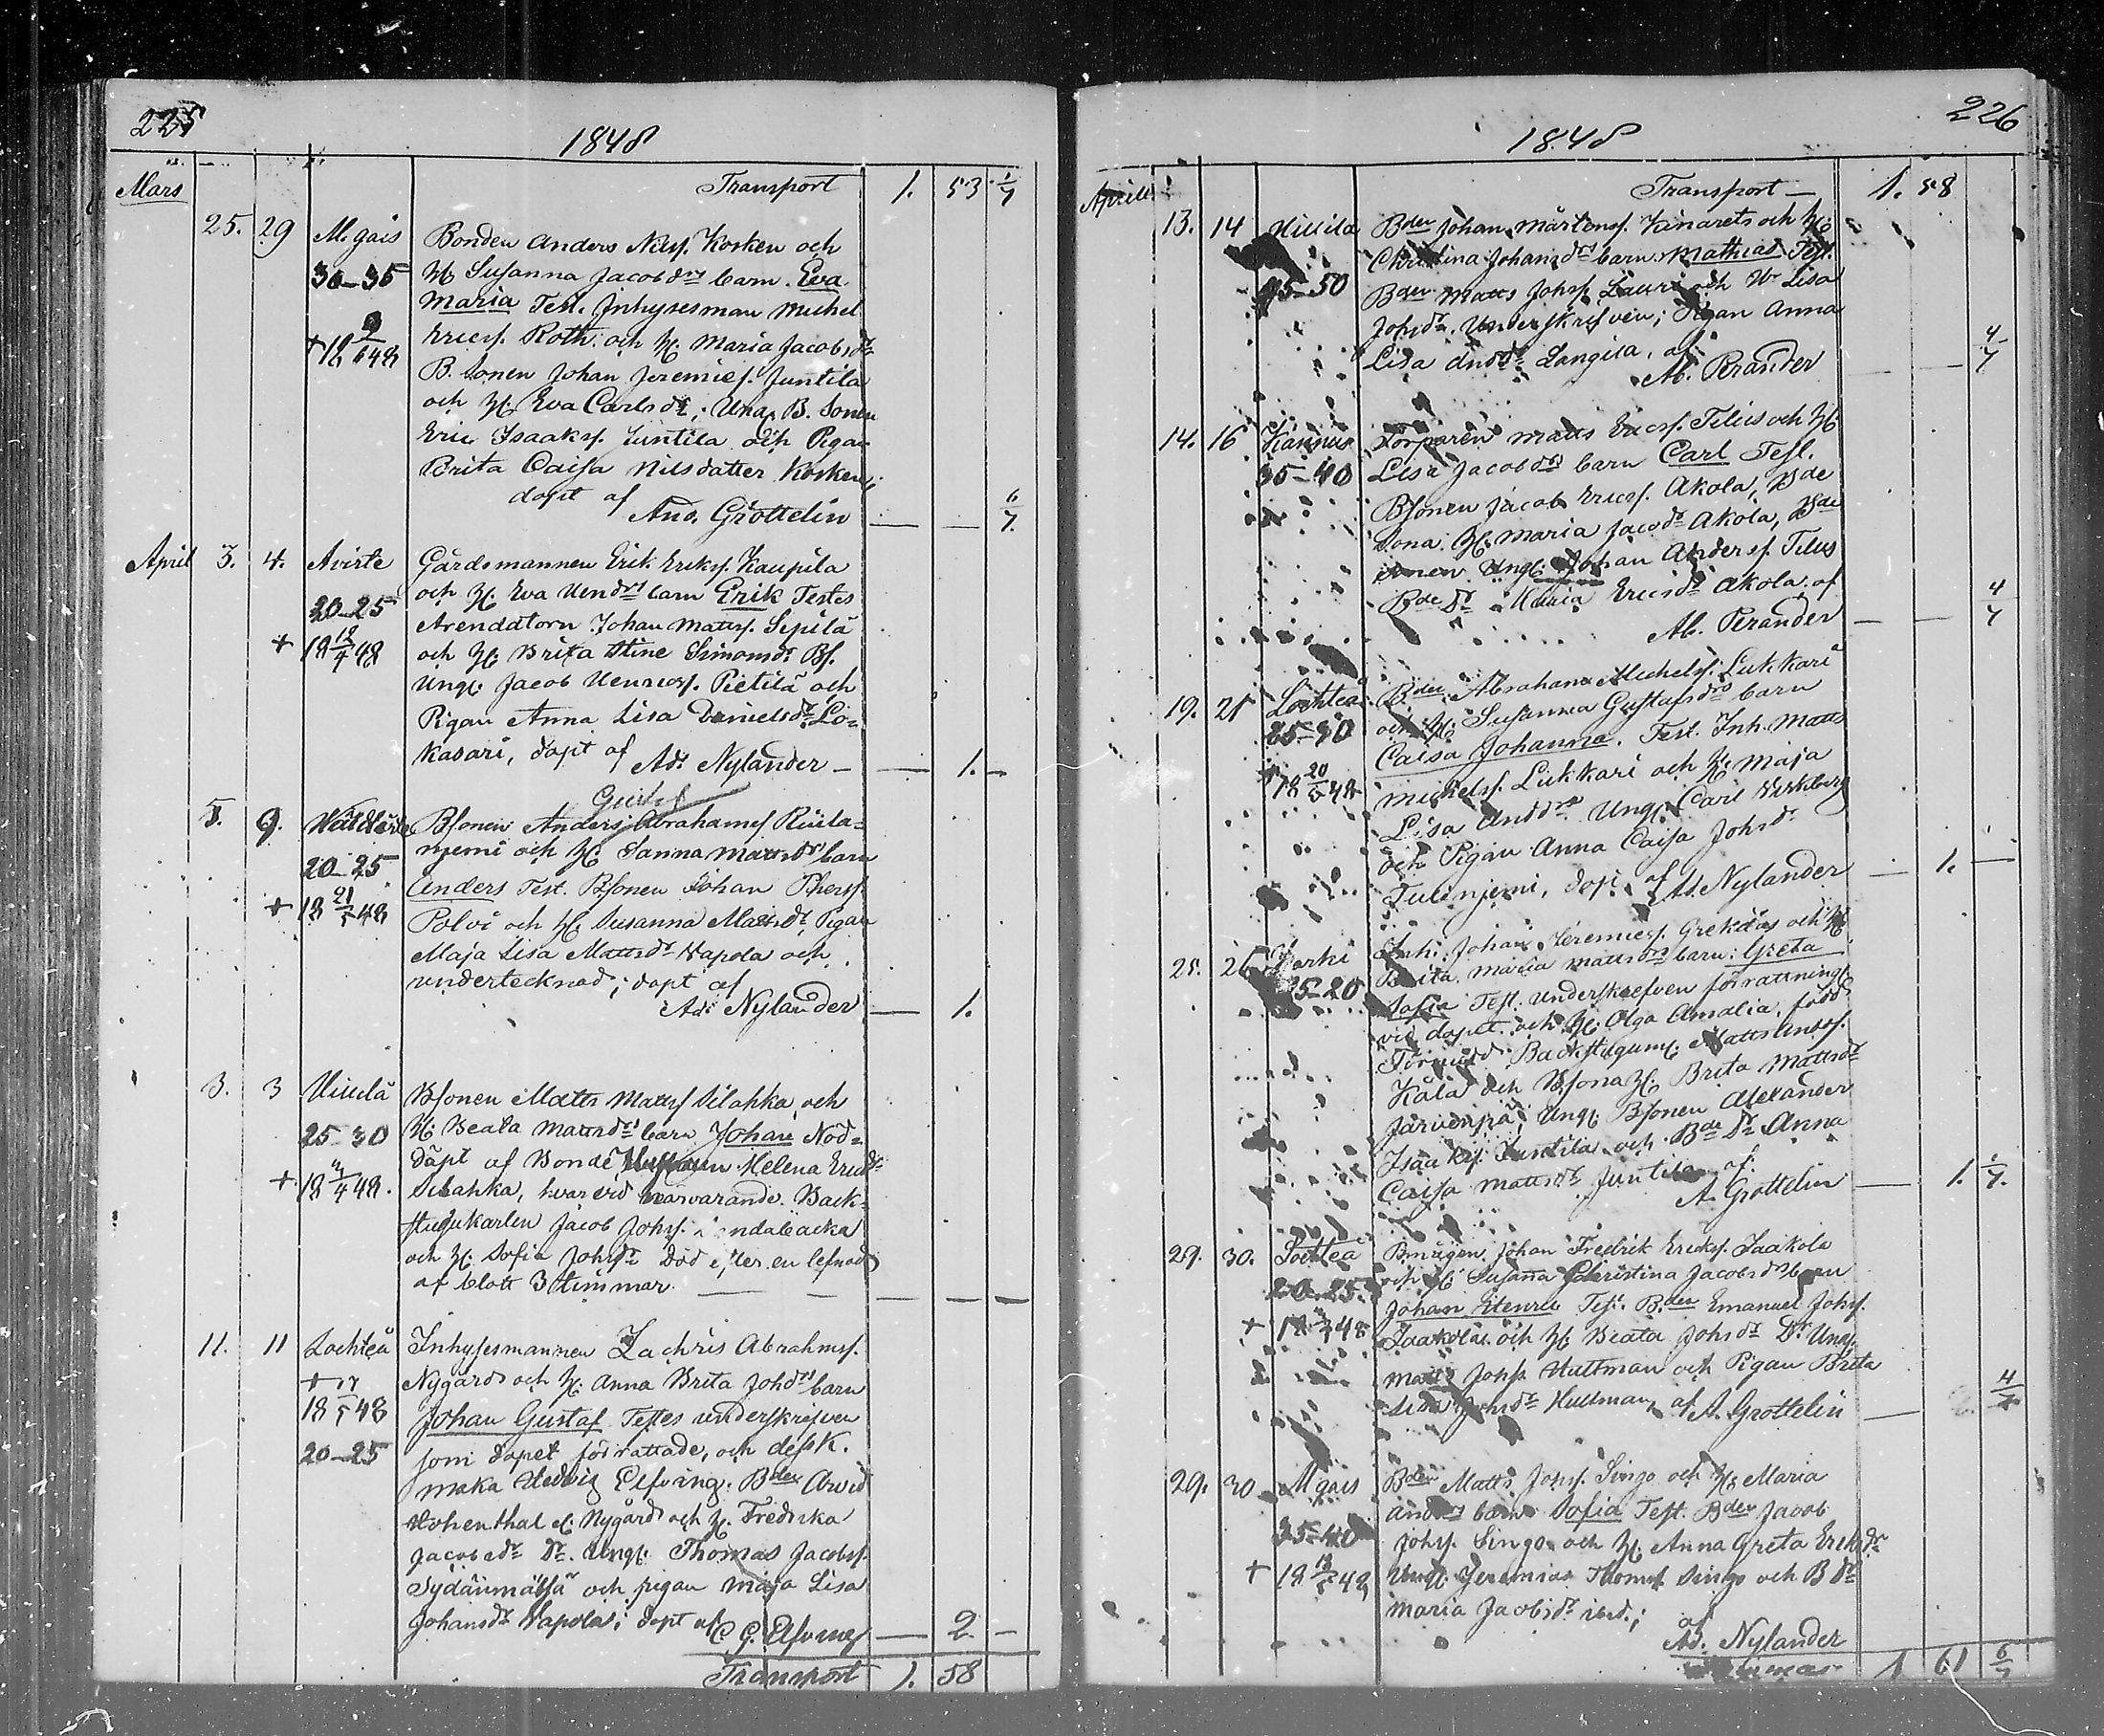 225
1848
Mars
Transport 1. 53 1/7
25. 29 M.gais Bonden Anders Nilsf. Kosken och
30-35 H. Susanna Jacobdrs barn Eva
Maria Test. Inhysesman Michel
Ericsf. Roth och H. Maria Jacobsdr
B. Sonen Johan Jeremiesf. Juntila
och H. Eva Carlsdr; Ung. B. Sonen
Eric Isaaksf. Juntila och Pigan
Brita Caisa Nilsdatter Kosken;
döpt af
And. Gröttelin — — 6/7
April 3. 4. Avirte Gårdsmannen Erik Eriksf. Kaupila
20-25 och H. Eva Hendrs barn Erik Testes
+ 18 18/4 48 Arendatorn Johan Mattsf. Sipilä
och H. Brita Stine Simonsdr Bf.
Ungl. Jacob Henricsf. Pietilä och
Pigan Anna Lisa Danielsdr Lo=
kasari, döpt af Ad. Nylander — — 1. —
Gustaf
5. 9. Bsonen Anders Abrahamsf Riuta=
20-25 njemi och H. Sanna Mattsdrs barn
+ 18 21/5 48 Anders Test. Bsonen Johan Phersf
Polvi och H. Susanna Mattsdr, Pigan
Maja Lisa Mattsdr Wapola och
undertecknad; döpt af
Ad. Nylander — 1.
3. 3 Wiirilä Bsonen Matts Mattsf Silahka och
25-30 H. Beata Mattsdrs barn Johan Nöd=
döpt af Bonde Helena Ericsdr
+ 18 4/4 48. Silahka, hvarvid närvarande Back=
stugukarlen Jacob Johsf.
och H. Sofia Johsdr Död efter en lefnad
af blott 3 timmar. — — —
11. 11 Lochteå Inhysesmannen Zachris Abrahmsf.
+ Nygård och H. Anna Brita Johdrs barn
Johan Gustaf Testes underskrifven
20-25 som dopet förrättade, och dess K.
maka Hedvig Elfving. Bden Arvid
Hohenthal å Nygård och H. Fredrika
Jacobsdr Dr. Ungl. Thomas Jacobsf.
Sydänmätsä och pigan Maja Lisa
Johansdr Wapola; döpt af C G. Elfving — 2 —
Transport 1. 58
226
1848
Aprill
Transport — 1. 58
13. 14 Wiirilä Bden Johan Mårtensf. Kinarets och H.
Christina Johansdrs barn Mathias Test.
45-50 Bden Matts Johsf. Lauri och Wr Lisa
Johsdr. Underskrifven; Pigan Anna
Lisa Andsdr Langila, af
Ab. Perander — — 4/7
14. 16 Kannus Torparen Matts Ericsf. Tilus och H.
35-40 Lisa Jacobdrs barn Carl Test.
Bsonen Jacob Ericsf. Akola, Bde
sona H. Maria Jacodr Akola, Bde
sonen Ungl. Johan Andersf. Tilus
Bde Dr Maria Ericsdr Akola, af
Ab. Perander — — 4/7
19. 21 Lochteå Bden Abraham Michelsf. Lukkari
25-30 och H. Susanna Gustafsdrs barn
Caisa Johanna. Test. Inh. Matts
+ 18 20/5 48 Michelsf. Lukkari och H. Maja
Lisa Andsdr Ungl. Carl
och Pigan Anna Caisa Johsdr
Tulinjemi, döpt af Ad. Nylander — 1. —
25. 26 Yorki Inh. Johan Jeremiesf. Grekelas och H
Brita Maria Mattsdrs barn: Greta
15-20 Sofia Test. Underskrefven förrättning
vid dopet och H. Olga Amalia, född
Törnudd; Backstugum. Matts Andsf.
Kälä och Bsona H. Brita Mattsdr
Järvenpä; Ungl. Bsonen Alexander
Isaaksf. Juntila och Bde Dr Anna
Caisa Mattsdr Juntila, af
A. Gröttelin — 1. 1/7.
29. 30. Lochteå Bmågen Johan Fredrik Ericksf. Jaakola
20-25. och H. Susanna Christina Jacobsdrs barn
Johan Henric Test. Bden Emanuel Johsf.
+ Jaakola och H. Beata Johsdr Dr Ungl.
Matts Johsf. Hultman och Pigan Brita
Lisa Johsdr Hultman, af A. Gröttelin — 4/7
29. 30 Mgais Bden Matts Johsf. Singo och H. Maria
Anddrs barn Sofia Test. Bden Jacob
35-40 Johsf. Singo och H. Anna Greta Erikdr
+ 18 13/5 48 Ungl. Jeremias Thomsf Singo och B Dr
Maria Jacobsdr ibid.;
af
Ad. Nylander
1 61 6/7